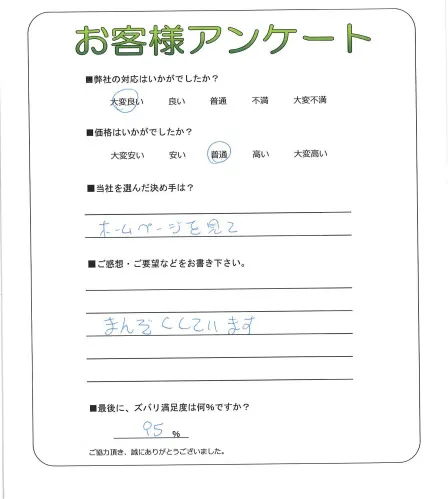 お客様アンケート
■弊社の対応はいかがでしたか?
大変良い 良い 普通 不満 大変不満
■価格はいかがでしたか?
大変安い 安い 普通 高い 大変高い
■当社を選んだ決め手は?
ホームページを見て
■ご感想・ご要望などをお書き下さい。
まんぞくしています
■最後に、ズバリ満足度は何%ですか?
95 %
ご協力頂き、誠にありがとうございました。